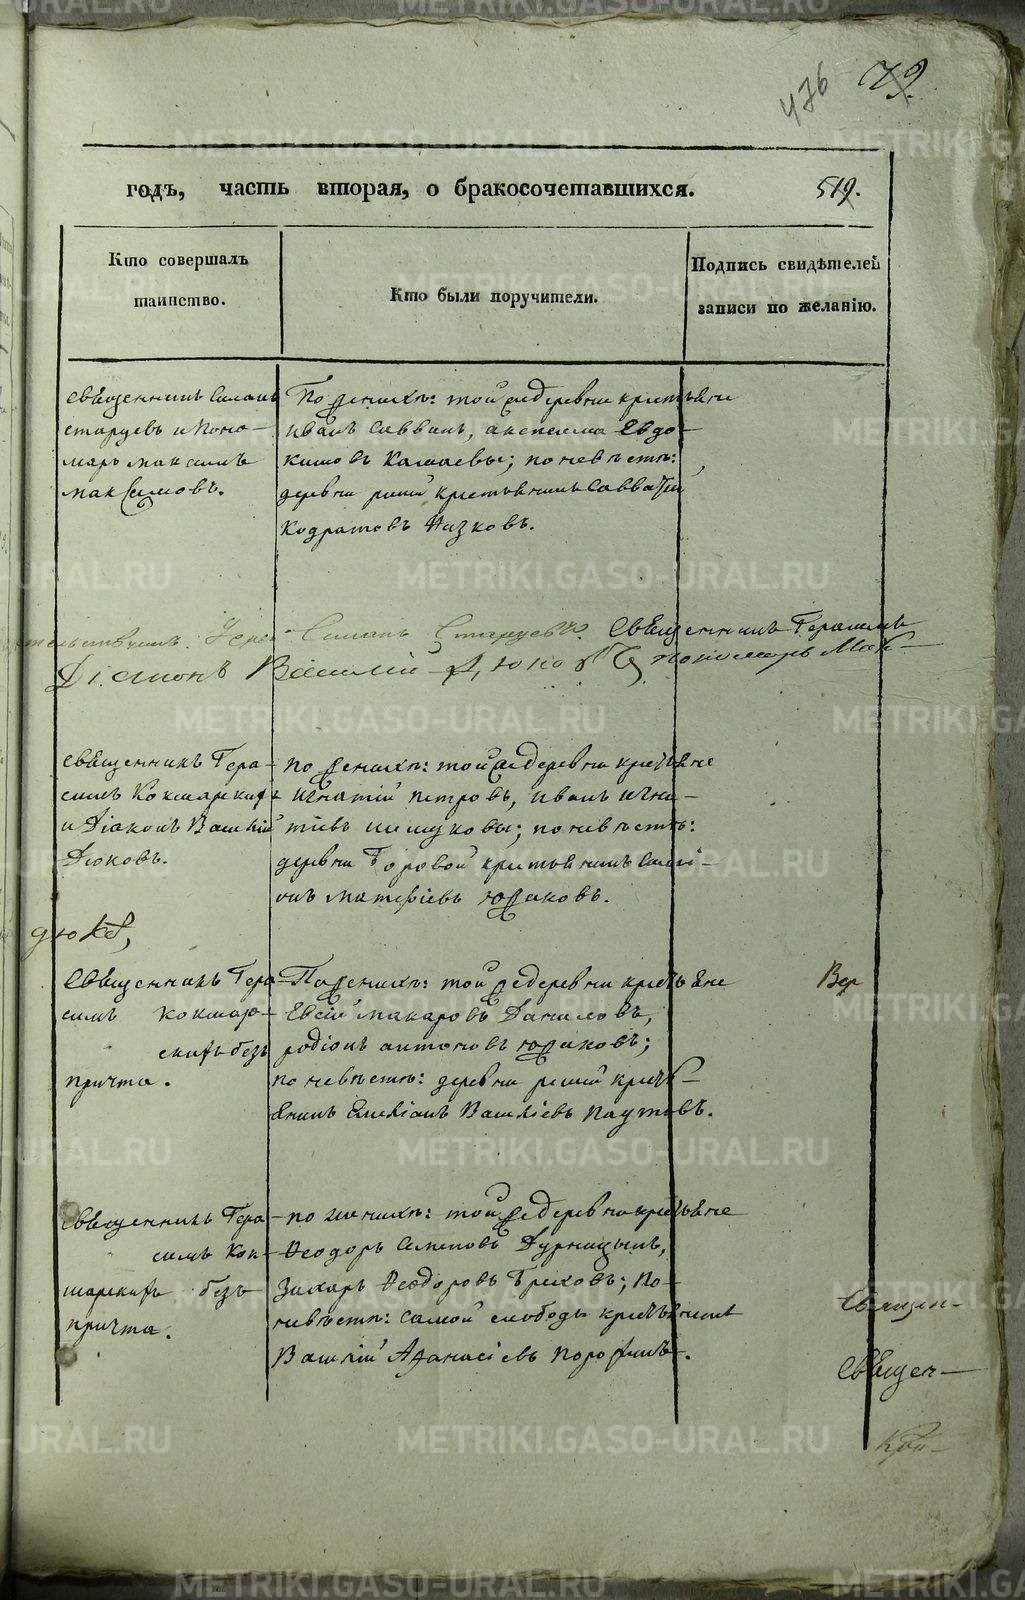 476 79.
годъ, часть вторая, о бракосочетавшихся. 519.
Кто совершалъ
таинство.
Кто были поручители.
Подпись свидѣтелей
записи по желанію.
Священникъ Симонъ
Старцевъ и Поно-
марь Максимъ
Максимовъ.
По женихѣ: той же деревни крестьяне
Иванъ Саввинъ, Евдо-
кимовъ Камаевы; по невѣстѣ:
деревни крестьянинъ Савватій
Кодратовъ Язковъ.
Симонъ Старцевъ. Священникъ Герасимъ
Діаконъ Василій Дюковъ Пономарь Мак-
Священникъ Гера-
симъ Кокшарскій
и Діаконъ Василій
Дюковъ.
По женихѣ: той же деревни крестьяне
Игнатій Петровъ, Иванъ Игна-
тіевъ Шишковы; по невѣстѣ:
деревни Боровой крестьянинъ
Матфіевъ Южаковъ.
Дюковъ
Священникъ Гера-
симъ Кокшар-
скій безъ
причта.
По женихѣ: той же деревни крестьяне
Евсій Макаровъ Даниловъ,
Родіонъ Антоновъ Южаковъ;
по невѣстѣ: деревни кресть-
янинъ Емиліанъ Василіевъ Паутовъ.
Вер
Священникъ Гера-
симъ Кок-
шарскій безъ
причта.
По женихѣ: той же деревни крестьяне
Ѳеодоръ Семеновъ Дурницынъ,
Захаръ Ѳеодоровъ Грѣховъ; по
невѣстѣ: самой слободы крестьянинъ
Василій Аѳанасіевъ Порошинъ.
Священ-
Священ-